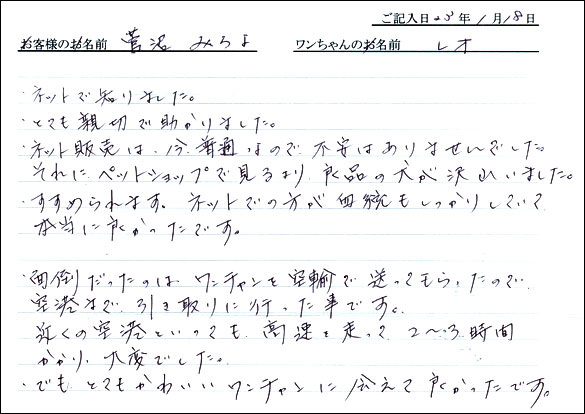 ご記入日 23年 1月18日
お客様のお名前 菅沼 みちよ ワンちゃんのお名前 レオ
・ネットで知りました。
・とても親切で助かりました。
・ネット販売は、今、普通なので不安はありませんでした。
それにペットショップで見るより、良品の犬が沢山いました。
・すすめられます。ネットでの方が血統もしっかりしていて
本当に良かったです。
・面倒だったのは、ワンチャンを空輸で送ってもらったので、
空港まで、引き取りに行った事です。
近くの空港といっても、高速を走って、2〜3時間
かかり、大変でした。
・でも、とてもかわいいワンチャンに会えて良かったです。